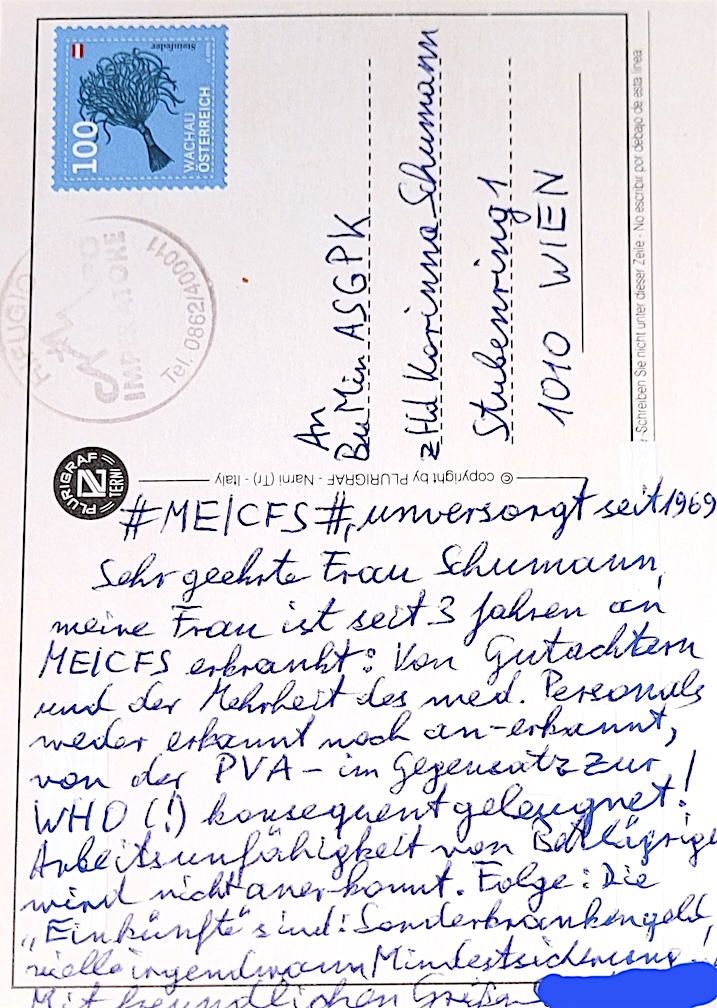 Steinfeder
100
WACHAU
ÖSTERREICH
IMPERATORE
Tel. 0862/400011
An
BuMin ASGPK
zHd Korinna Schumann
Stubenring 1
1010 WIEN
Schreiben Sie nicht unter dieser Zeile - No escribir por debajo de esta linea
PLURIGRAF
TERNI
© copyright by PLURIGRAF - Narni (Tr) - Italy
#ME/CFS#, unversorgt seit 1969
Sehr geehrte Frau Schumann,
meine Frau ist seit 3 Jahren an
ME/CFS erkrankt: Von Gutachtern
und der Mehrheit des med. Personals
weder erkannt noch an-erkannt,
von der PVA - im Gegensatz zur
WHO (!) konsequent geleugnet!
Arbeitsunfähigkeit von Bettlägrige
wird nicht anerkannt. Folge: Die
„Einkünfte" sind: Sonderkrankengeld,
irgendwann Mindestsicherung!
Mit freundlichen Grüßen